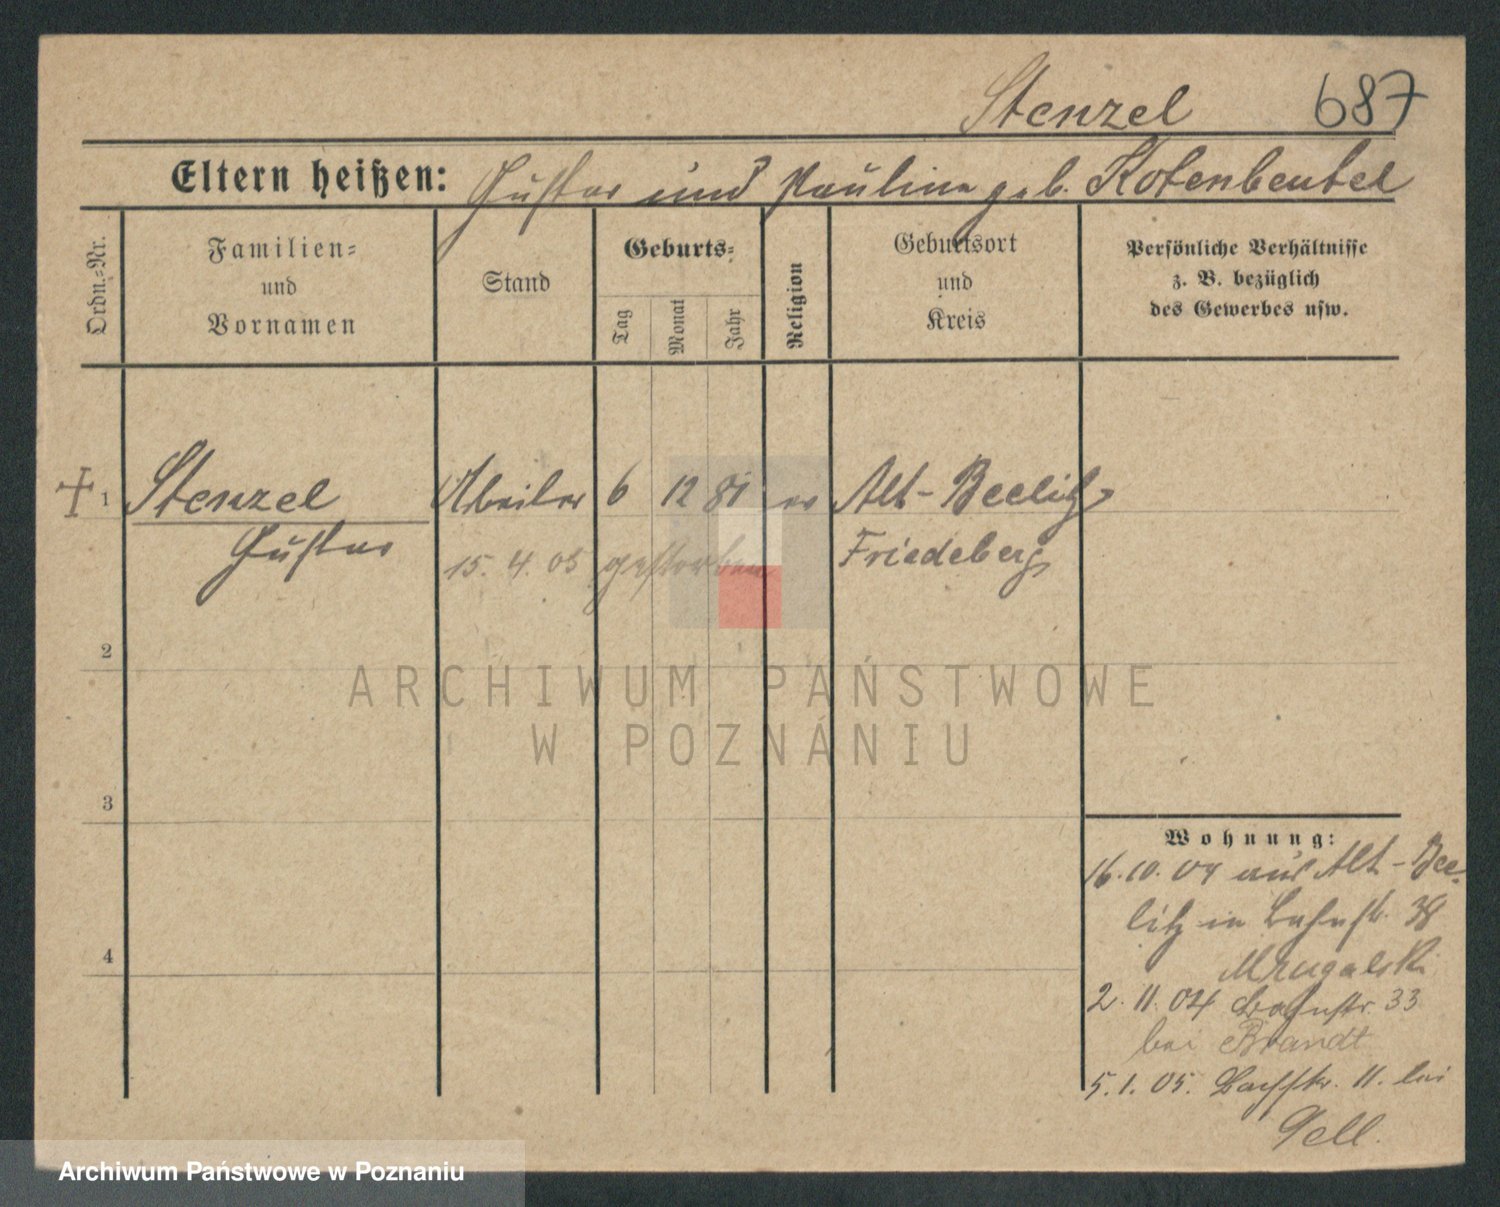 Stenzel 687
Eltern heißen: Gustav und Pauline geb. Kotenbeutel
Ordn.-Nr.
Familien-
und
Vornamen
Stand
Geburts-
Tag
Monat
Jahr
Religion
Geburtsort
und
Kreis
Persönliche Verhältnisse
z. B. bezüglich
des Gewerbes usw.
1 Stenzel Arbeiter 6 12 81 ev Alt-Beelitz
Gustav 15. 4. 05 gestorben Friedeberg
2
3
4
Wohnung:
16. 10. 04 aus Alt-Bee-
litz in Bahnstr. 38
Mrugalski
2. 11. 04 Bahnstr. 33
bei Brandt
5. 1. 05. 11. bei
Gell.
ARCHIWUM PAŃSTWOWE
W POZNANIU
Archiwum Państwowe w Poznaniu